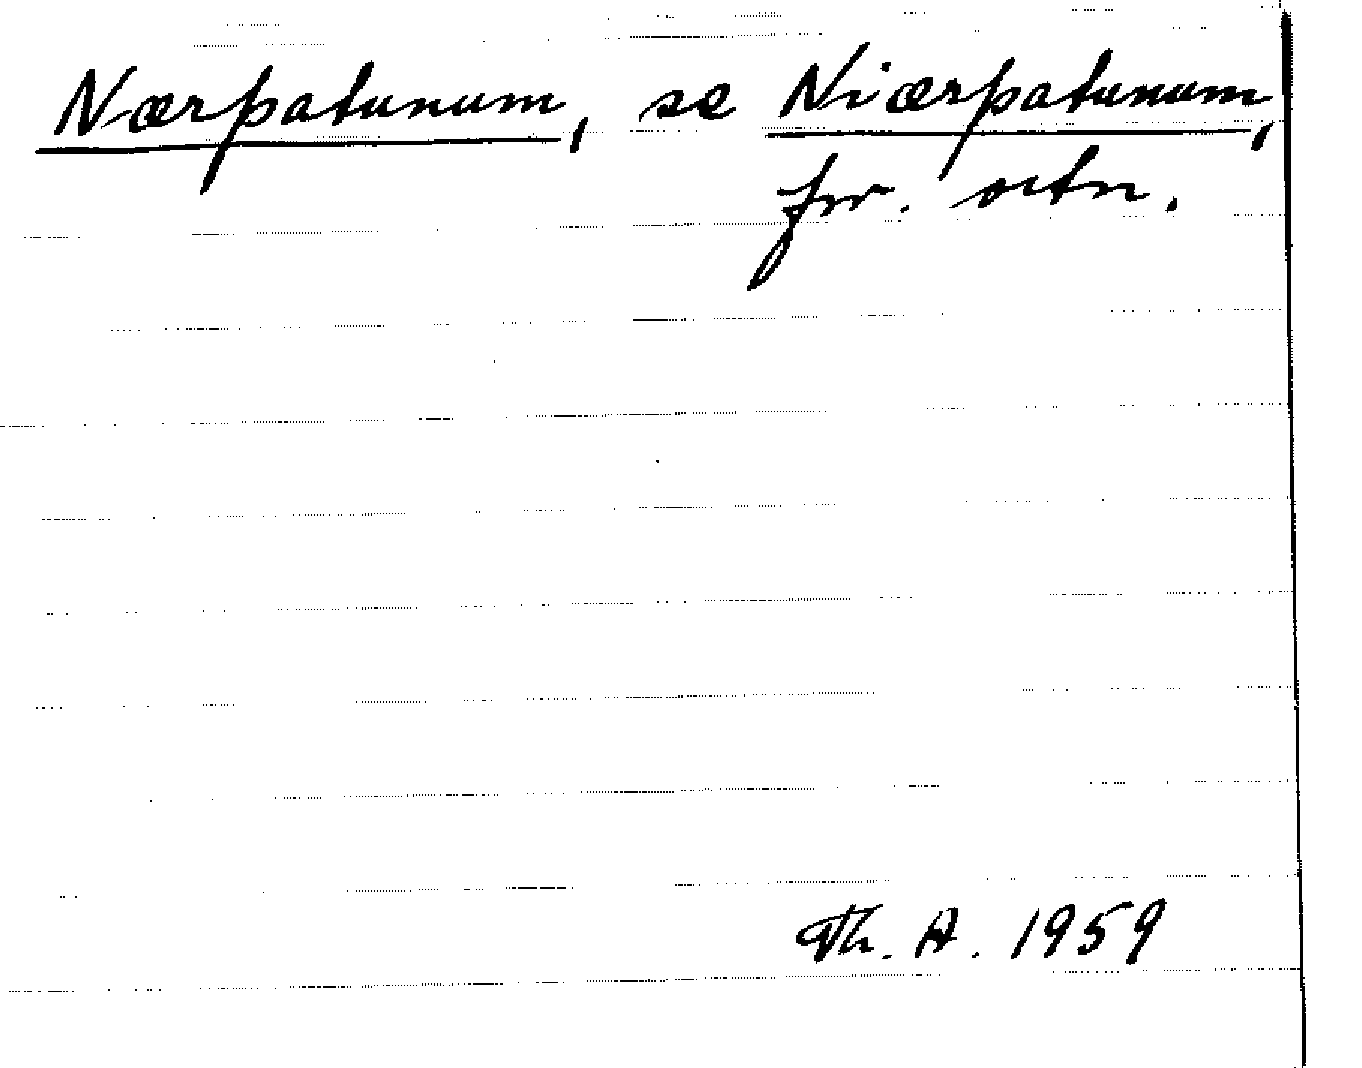 Nærþatunum, se Niærþatunum,
fvr. ortn.
Th. A. 1959